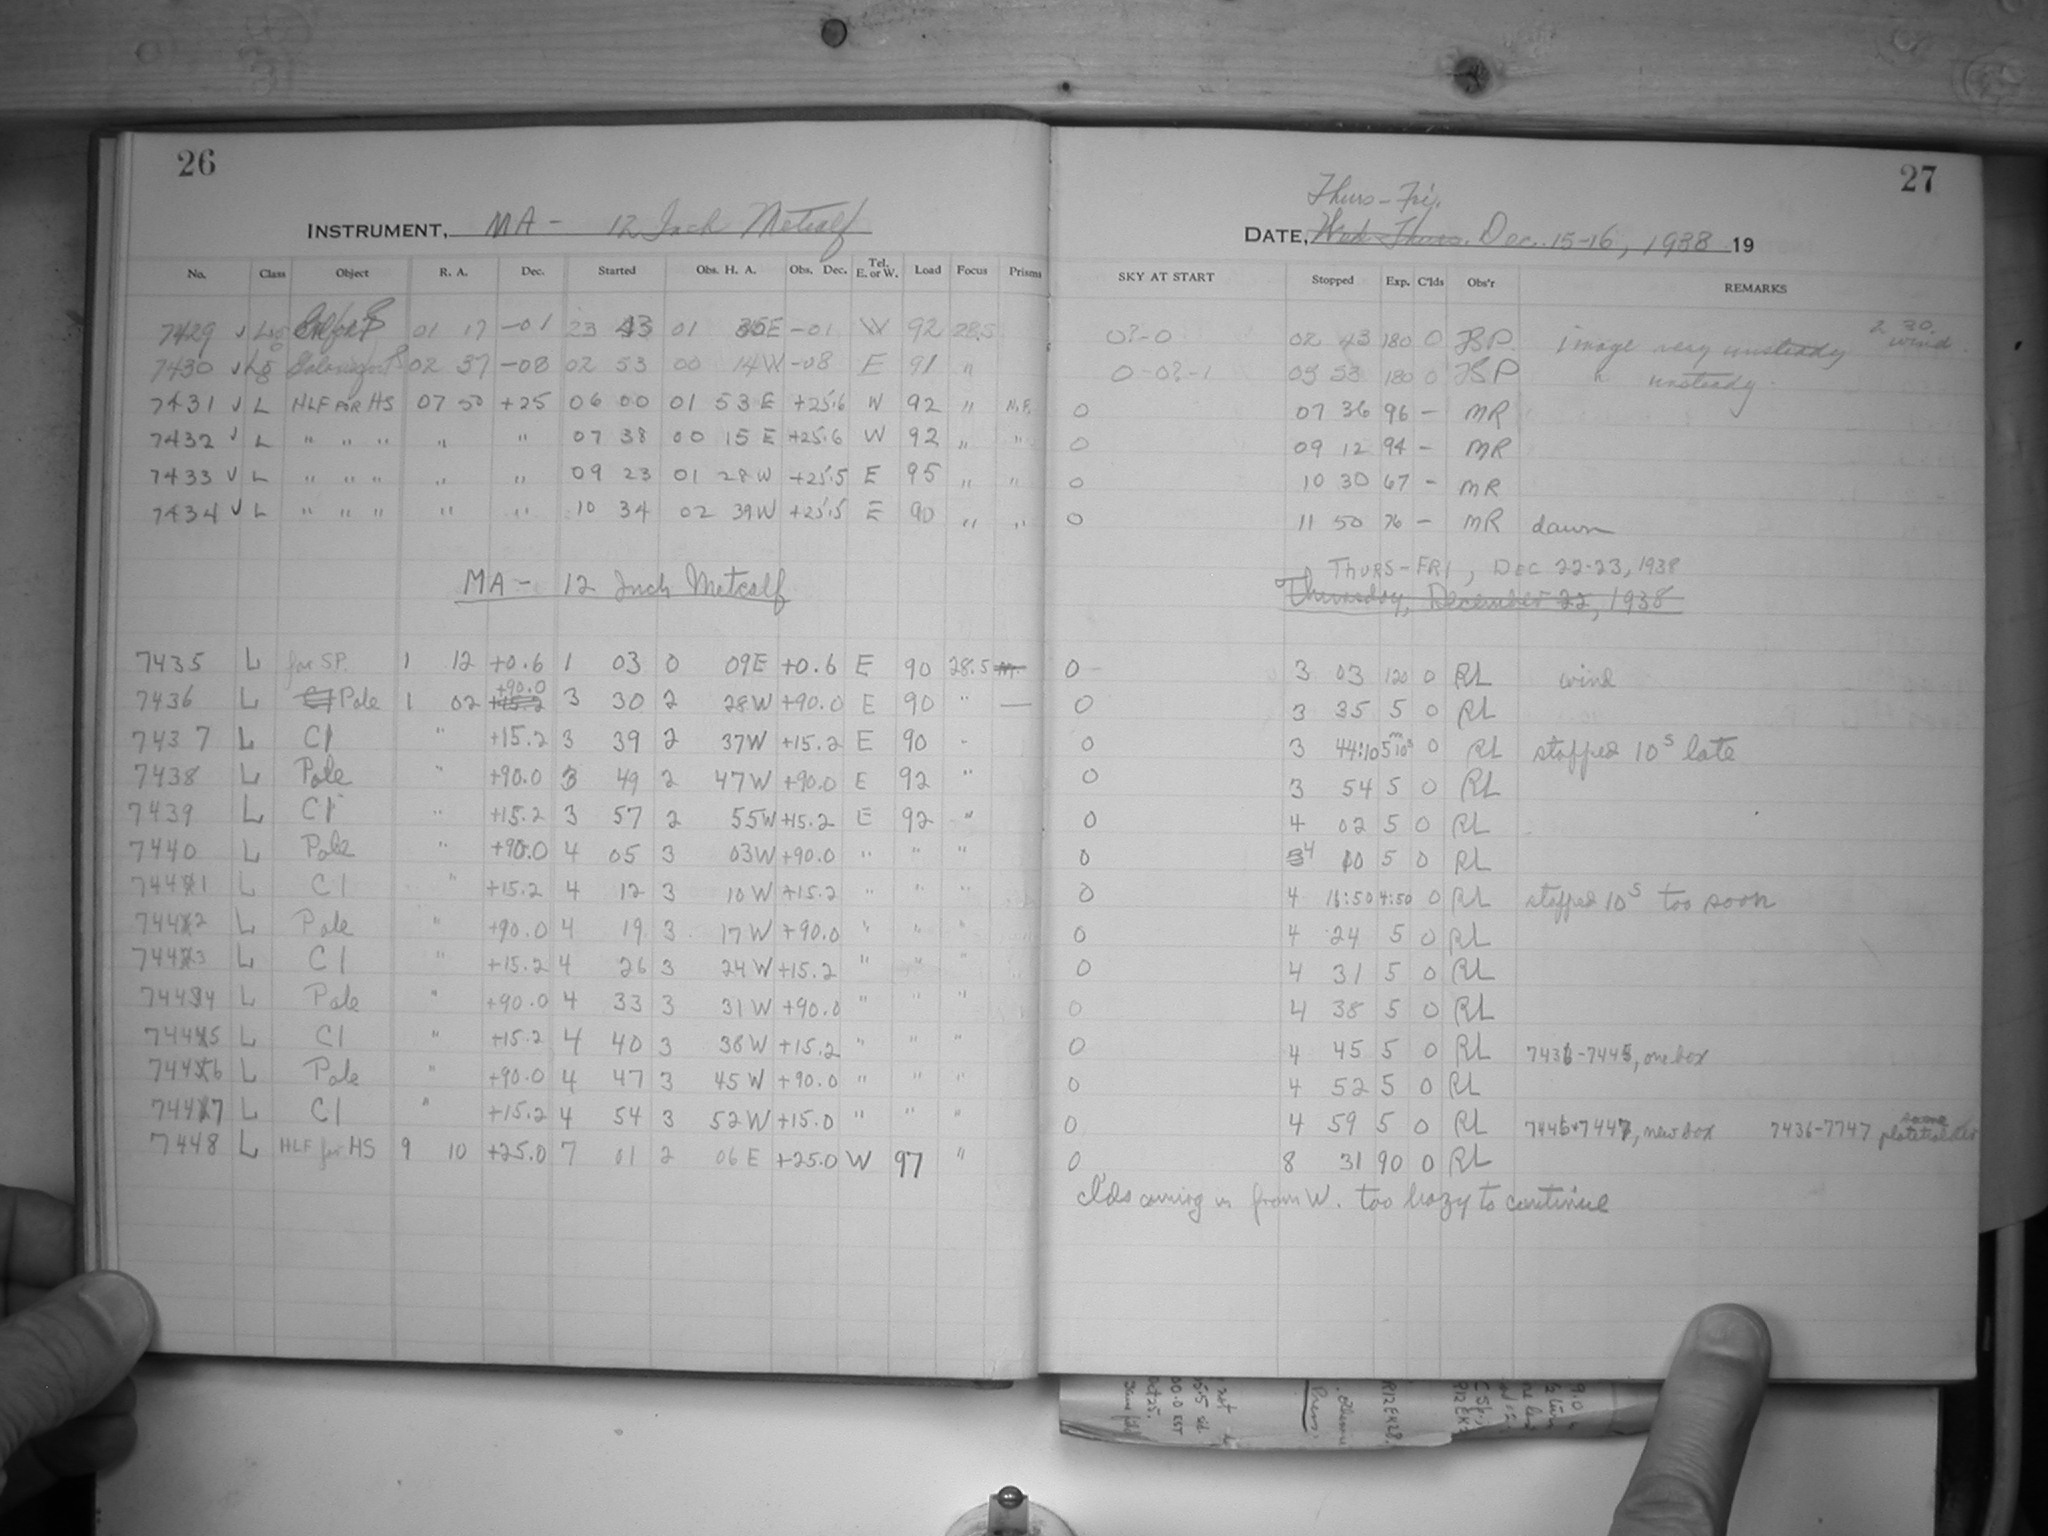 26
27
Thurs-Fri.
INSTRUMENT, MA - 12 Inch Metcalf
DATE, Wed-Thurs. Dec. 15-16, 1938 19
No. Class Object R. A. Dec. Started Obs. H. A. Obs. Dec. Tel. E. or W. Load Focus Prisms SKY AT START Stopped Exp. C'lds Obs'r REMARKS
7429 √ 01 17 -01 23 43 01 35E -01 W 92 28.5 0?-0 02 43 180 0 image very unsteady 2 30 wind
7430 √ Lg 02 37 -08 02 53 00 14W -08 E 91 " 0-0?-1 05 53 180 0 " unsteady.
7431 √ L HLF FOR HS 07 50 +25 06 00 01 53 E +25.6 W 92 " 0 07 36 96 - MR
7432 √ L " " " " " 07 38 00 15 E +25.6 W 92 " " 0 09 12 94 - MR
7433 √ L " " " " " 09 23 01 28 W +25.5 E 95 " " 0 10 30 67 - MR
7434 √ L " " " " " 10 34 02 39W +25.5 E 90 " " 0 11 50 76 - MR dawn
THURS-FRI, DEC 22-23, 1938
MA - 12 Inch Metcalf Thursday, December 22, 1938
7435 L for SP. 1 12 +0.6 1 03 0 09E +0.6 E 90 28.5 0 3 03 120 0 RL wind
7436 L C1 Pole 1 02 +90.0 +15.2 3 30 2 28W +90.0 E 90 " — 0 3 35 5 0 RL
7437 L C1 " +15.2 3 39 2 37W +15.2 E 90 - 0 3 44:10 5m10s 0 RL stopped 10s late
7438 L Pole " +90.0 3 49 2 47W +90.0 E 92 " 0 3 54 5 0 RL
7439 L C1 " +15.2 3 57 2 55W +15.2 E 92 " 0 4 02 5 0 RL
7440 L Pole " +90.0 4 05 3 03W +90.0 " " " 0 4 10 5 0 RL
7441 L C1 " +15.2 4 12 3 10W +15.2 " " " 0 4 16:50 4:50 0 RL stopped 10s too soon
7442 L Pole " +90.0 4 19 3 17W +90.0 " " " 0 4 24 5 0 RL
7443 L C1 " +15.2 4 26 3 24W +15.2 " " " 0 4 31 5 0 RL
7444 L Pole " +90.0 4 33 3 31W +90.0 " " " 0 4 38 5 0 RL
7445 L C1 " +15.2 4 40 3 38W +15.2 " " " 0 4 45 5 0 RL 7436-7445, one box
7446 L Pole " +90.0 4 47 3 45W +90.0 " " " 0 4 52 5 0 RL
7447 L C1 " +15.2 4 54 3 52W +15.0 " " " 0 4 59 5 0 RL 7446+7447, new box 7436-7747 same plateholder
7448 L HLF for HS 9 10 +25.0 7 01 2 06 E +25.0 W 97 " 0 8 31 90 0 RL
Clds coming in from W. too hazy to continue